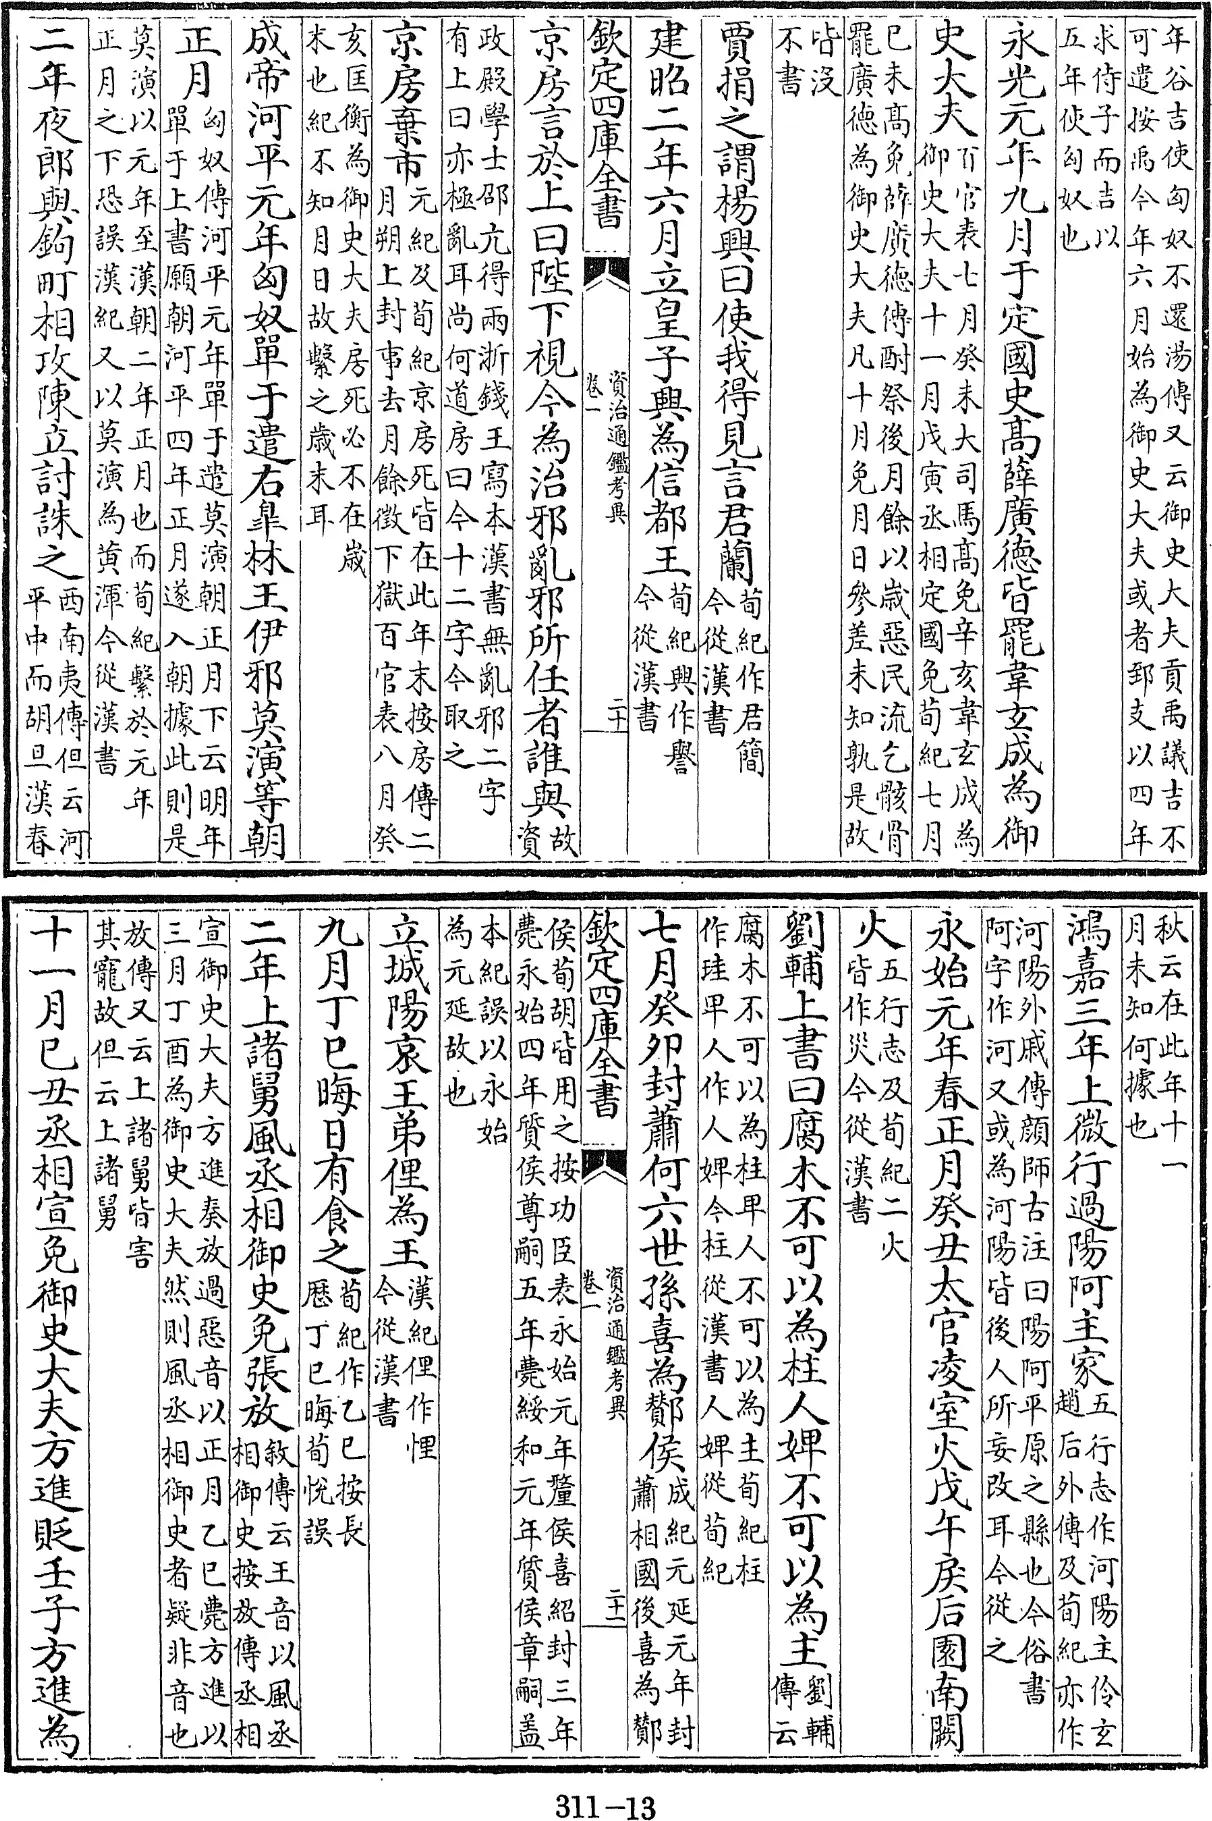 年谷吉使匈奴不還湯傳又云御史大夫貢禹議吉不
可遣按禹今年六月始為御史大夫或者郅支以四年
求侍子而吉以
五年使匈奴也
永光元年九月于定國史髙薛廣德皆罷韋玄成為御
史大夫
百官表七月癸未大司馬髙免辛亥韋玄成為
御史大夫十一月戊寅丞相定國免荀紀七月
已未髙免薛廣德傳酎祭後月餘以歲惡民流乞骸骨
罷廣德為御史大夫凡十月免月日參差未知孰是故
皆沒
不書
賈捐之謂楊興曰使我得見言君蘭
荀紀作君簡
今從漢書
建昭二年六月立皇子興為信都王
荀紀興作譽
今從漢書
欽定四庫全書
資治通鑑考異
卷一
二十
京房言於上曰陛下視今為治邪亂邪所任者誰與
故
資
政殿學士邵亢得兩浙錢王寫本漢書無亂邪二字
有上曰亦極亂耳尚何道房曰今十二字今取之
京房棄市
元紀及荀紀京房死皆在此年末按房傳二
月朔上封事去月餘徵下獄百官表八月癸
亥匡衡為御史大夫房死必不在歲
末也紀不知月日故繫之歲末耳
成帝河平元年匈奴單于遣右皐林王伊邪莫演等朝
正月
匈奴傳河平元年單于遣莫演朝正月下云明年
單于上書願朝河平四年正月遂入朝據此則是
莫演以元年至漢朝二年正月也而荀紀繫於元年
正月之下恐誤漢紀又以莫演為黄渾今從漢書
二年夜郎與鉤町相攻陳立討誅之
西南夷傳但云河
平中而胡旦漢春
秋云在此年十一
月未知何據也
鴻嘉三年上微行過陽阿主家
五行志作河陽主伶玄
趙后外傳及荀紀亦作
河陽外戚傳顔師古注曰陽阿平原之縣也今俗書
阿字作河又或為河陽皆後人所妄改耳今從之
永始元年春正月癸丑太官凌室火戊午戾后園南闕
火
五行志及荀紀二火
皆作災今從漢書
劉輔上書曰腐木不可以為柱人婢不可以為主
劉輔
傳云
腐木不可以為柱卑人不可以為主荀紀柱
作珪卑人作人婢今柱從漢書人婢從荀紀
七月癸卯封蕭何六世孫喜為酇侯
成紀元延元年封
蕭相國後喜為酇
欽定四庫全書
資治通鑑考異
卷一
二十一
侯荀胡皆用之按功臣表永始元年釐侯喜紹封三年
薨永始四年質侯尊嗣五年薨綏和元年質侯章嗣盖
本紀誤以永始
為元延故也
立城陽哀王弟俚為王
漢紀俚作悝
今從漢書
九月丁巳晦日有食之
荀紀作乙巳按長
歷丁巳晦荀悅誤
二年上諸舅風丞相御史免張放
敘傳云王音以風丞
相御史按放傳丞相
宣御史大夫方進奏放過惡音以正月乙巳薨方進以
三月丁酉為御史大夫然則風丞相御史者疑非音也
放傳又云上諸舅皆害
其寵故但云上諸舅
十一月己丑丞相宣免御史大夫方進貶壬子方進為
311-13